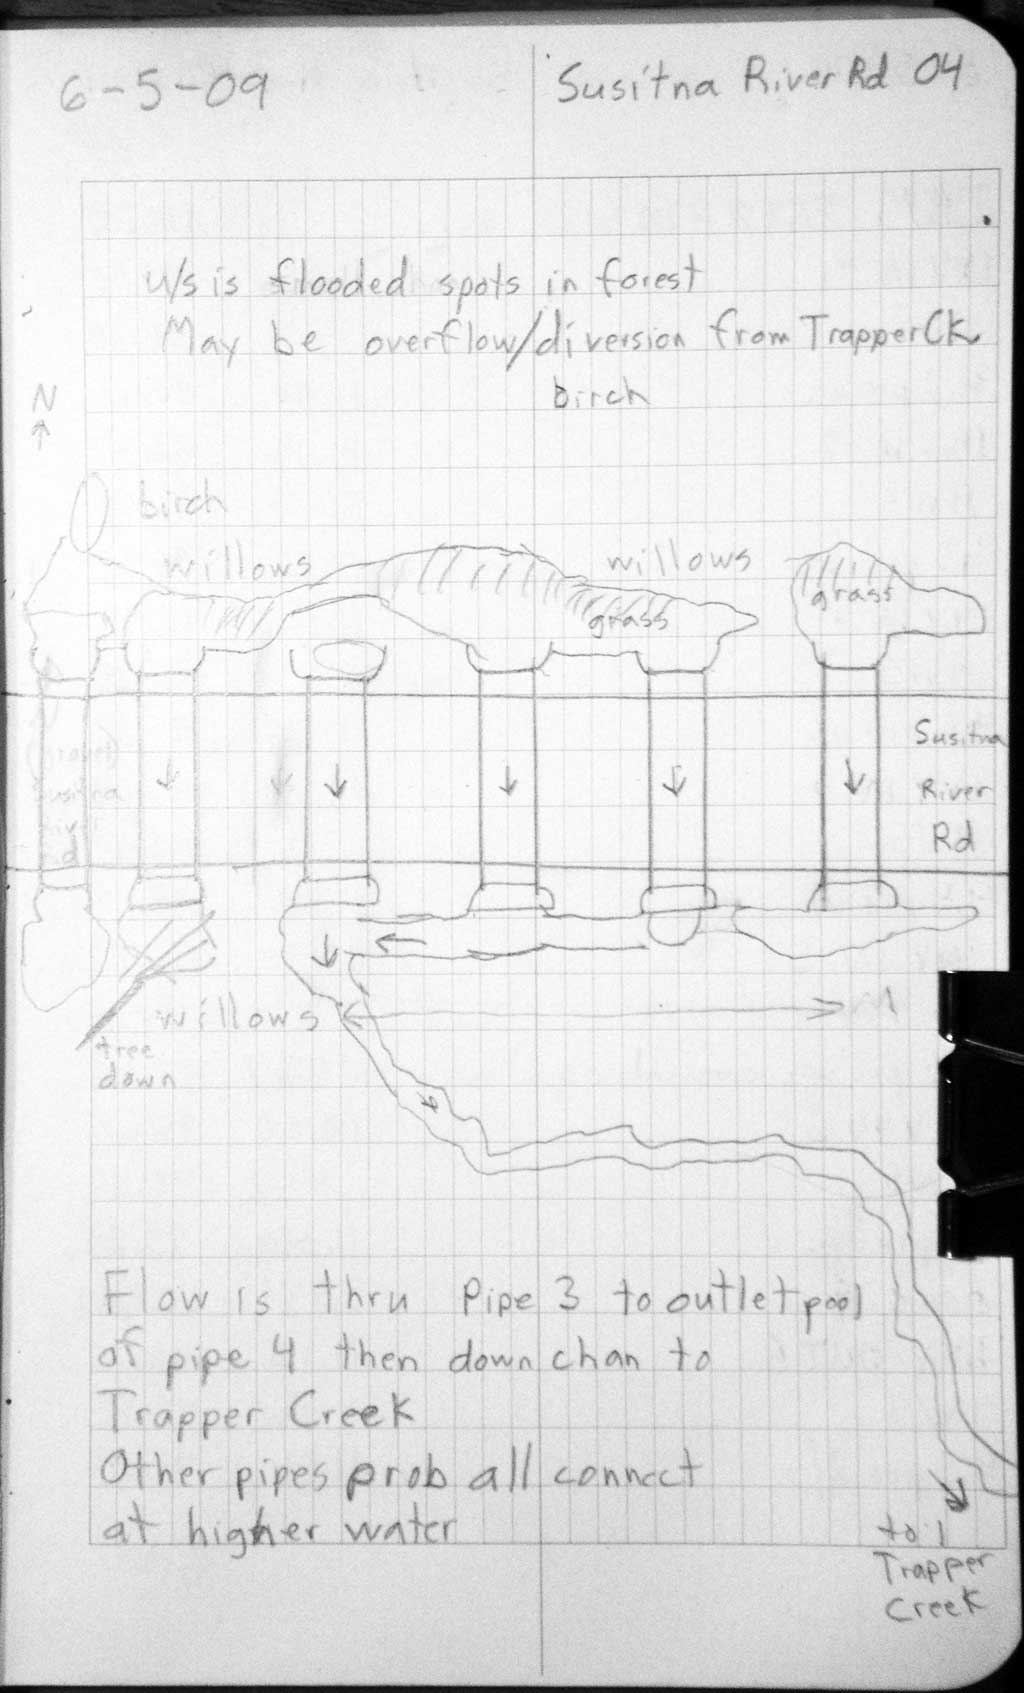 6-5-09
Susitna River Rd 04
u/s is flooded spots in forest
May be overflow/diversion from Trapper Ck
birch
N
birch
willows
willows
grass
grass
Susitna
River
Rd
(gravel)
Susitna
River
Rd
willows
tree
down
Flow is thru Pipe 3 to outlet pool
of pipe 4 then down chan to
Trapper Creek
Other pipes prob all connect
at higher water
to
Trapper
Creek